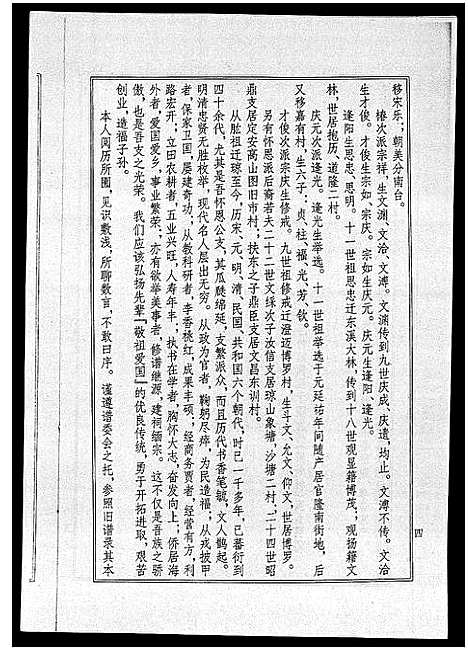 移宋乐；朝美分南台。
椿次派宗祥，生文渊、文洽、文溥。文渊传到九世庆成、庆遗，均止。文溥不传。文洽
生才俊。才俊生宗如、宗庆。宗如生庆元。庆元生逢阳、逢光。
逢阳生思忠、思明。十一世祖思忠迁东溪大林，传到十八世观显籍博茂；观扬籍文
林，世居抱历、道隆二村。
庆元次派逢光。逢光生举选。十一世祖举选于元延祐年间随产居官隆南街地，后
又移嘉有村，生六子：贞、柱、福、光、芳、钦。
才俊次派宗庆生修戒。九世祖修戒迁澄迈博罗村，生斗文、允文、仰文，世居博罗。
另有怀恩派后裔若夫二十二世文绿次子汝信支居琼山象塘，沙塘二村。二十四世昭
鼎支居定安高山图旧市村；扶东之子鼎臣支居文昌东训村。
从肱祖迁琼至今，历宋、元、明、清、民国、共和国六个朝代，时已一千多年，已蕃衍到
四十余代，尤其是吾怀恩公支，其瓜瓞绵延，支繁派众，而且历代书香笔毓，文人鹊起。
明清忠贤无胜枚举，现代名人层出无穷。从政为官者，鞠躬尽瘁，为民造福；从戎披甲
者，保家卫国，屡建奇功；从教科研者，李香桃红，成果丰硕；经商务贾者，经营有方，利
路宏开；立田农耕者，五业兴旺，人寿年丰；执书在学者，胸怀大志，奋发向上；侨居海
外者，爱国爱乡，事业繁荣；亦有欲举美事者，修谱继源，建祠缅宗。这不仅是吾族之骄
傲，也是吾支之光荣。我们应该弘扬先辈『敬祖爱国』的优良传统，勇于开拓进取，艰苦
创业，造福子孙。
本人阅历所囿，见识敷浅，所聊数言，不敢曰序。谨遵谱委会之托，参照旧谱录其本
四